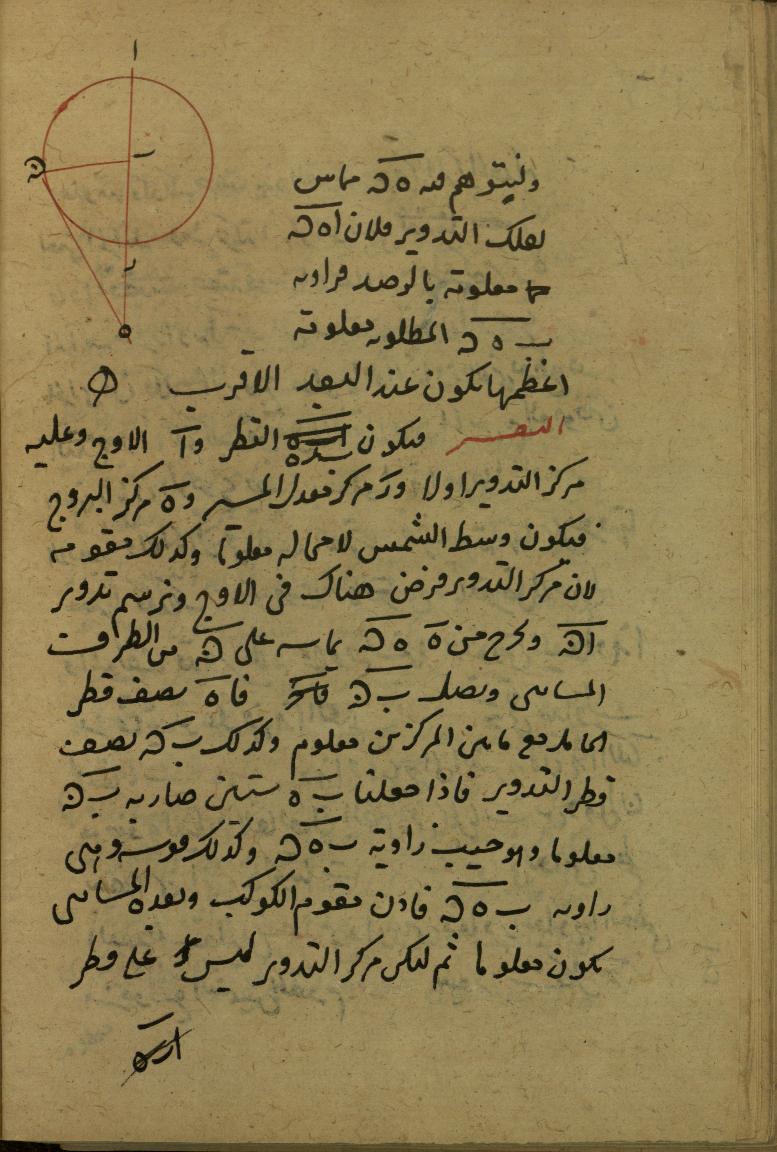 ا
ب
ح
ر
ه
وليتوهم ه ح مماس
لفلك التدوير فلان ا ه ح
معلومة بالرصد فزاوية
ب ه ح المطلوبه معلومة
اعظمها تكون عند البعد الاقرب
التفسير فيكون القطر و ا الاوج وعليه
مركز التدوير اولا و ر مركز معدل المسير و ه مركز البروج
فيكون وسط الشمس لا محاله معلوما وكذلك مقومه
لان مركز التدوير فرض هناك في الاوج ونرسم تدوير
ا ح ونخرج من ه ه ح يماسه على ح من الطرف
المسائى ونصل ب ح فا ه نصف قطر
الحامل مع ما بين المركزين معلوم وكذلك ب ح نصف
قطر التدوير فاذا جعلنا ب ه ستين صار به ب ح
معلوما وهو جيب زاوية ب ه ح وكذلك قوسه وهى
زاويه ب ه ح فاذن مقوم الكوكب وبعده المسائى
يكون معلوما ثم ليكن مركز التدوير ليس على قطر
ا ر ه